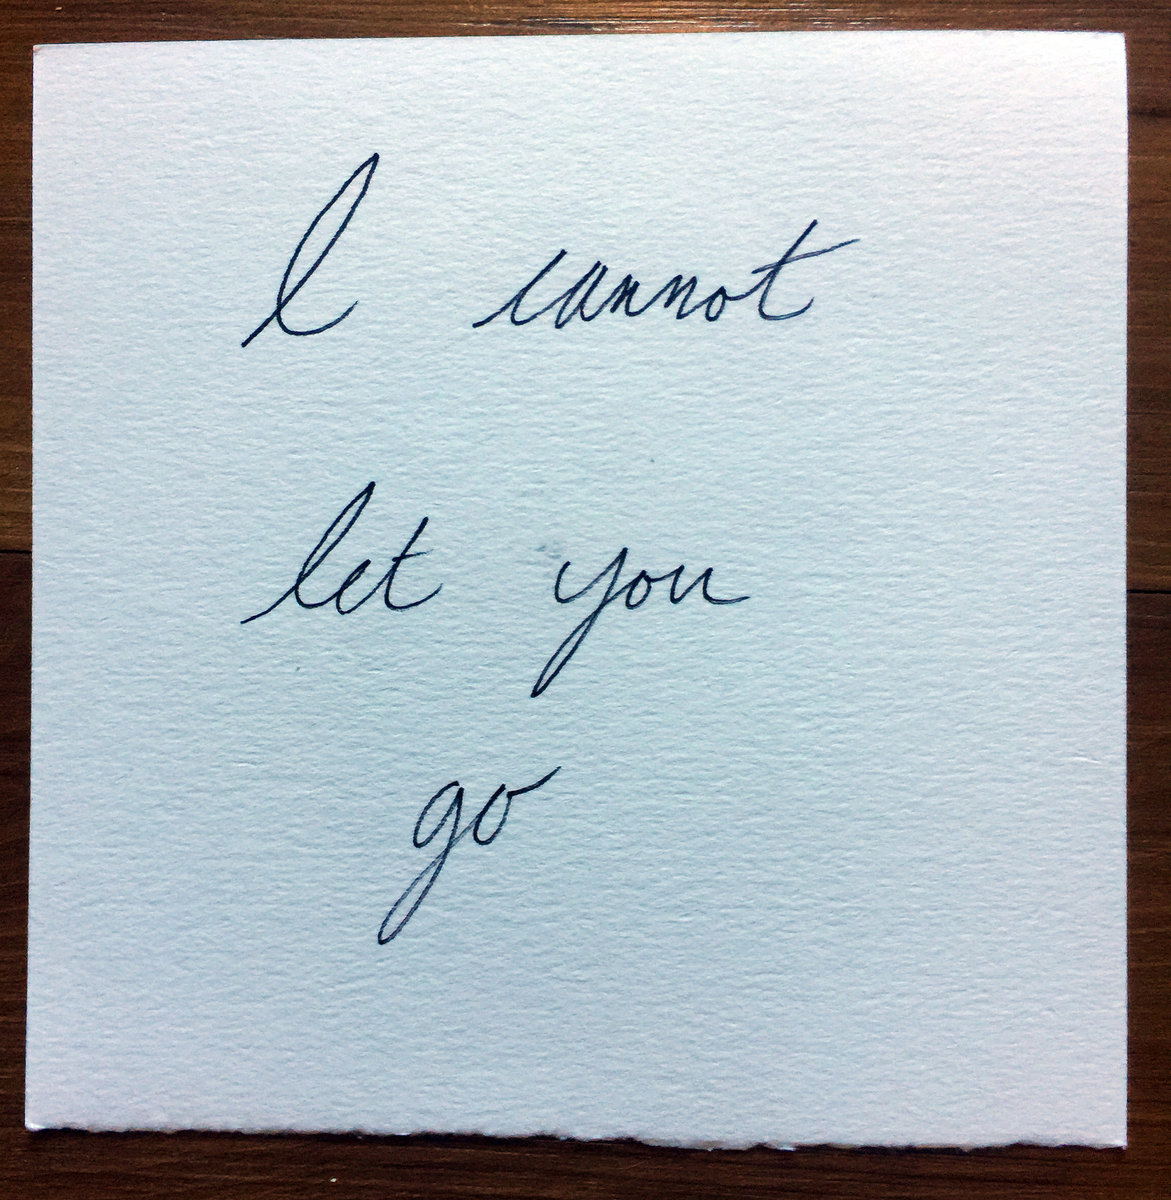 I cannot
let you
go